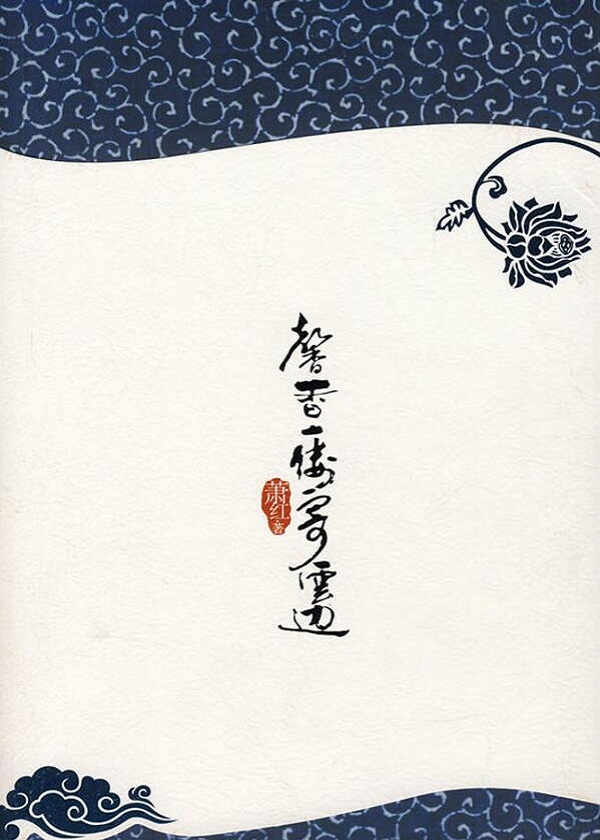 馨香一缕寄雲边
萧红·著